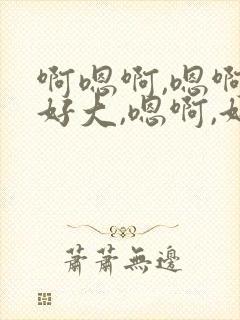 啊嗯啊,嗯啊
好大,嗯啊,好
萧萧無邊